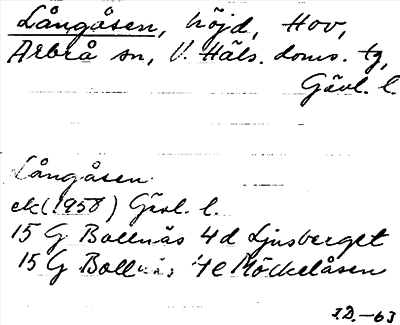 Långåsen, höjd, Hov,
Arbrå sn, V. Häls. doms. tg,
Gävl. l.
Långåsen
ek (1958) Gävl. l.
15 G Bollnäs 4d Ljusberget
15 G Bollnäs 4e Möckelåsen
I.D. -63